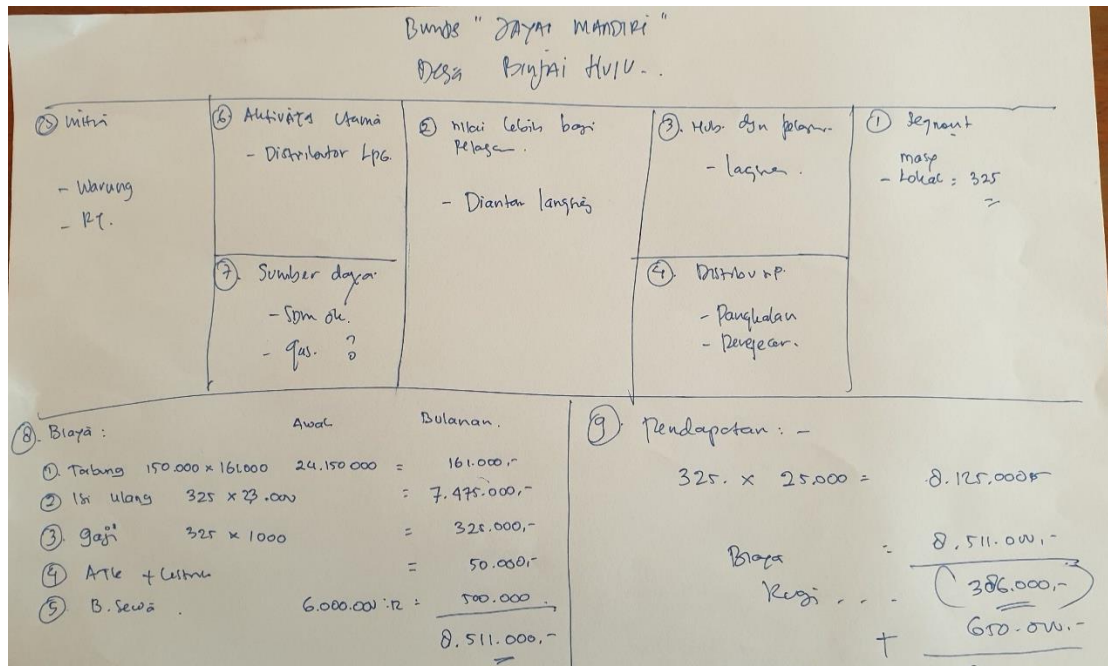 Bumdes "JAYA MANDIRI"
Desa BINJAI HULU..
⑤ mitra
- Warung
- RT.
⑥ Aktivitas Utama
- Distributor LPG.
⑦. Sumber daya.
- SDM ok.
- gas. ?
② nilai lebih bagi
- Diantar langsung
③. Hub. dgn
④. Distribusi.
- Pangkalan
- Pengecer.
① Segment
masy
- Lokal = 325
⑧. Biaya : Awal Bulanan.
① Tabung 150.000 x 161.000 24.150.000 = 161.000,-
② Isi ulang 325 x 23.000 : 7.475.000,-
③ gaji 325 x 1000 = 325.000,-
④ ATK + Listrik = 50.000,-
⑤ B. Sewa . 6.000.000 :12 = 500.000
8.511.000,-
⑨. Pendapatan : -
325. x 25.000 = 8.125.000
Biaya = 8.511.000,-
Rugi ... (386.000,-)
+ 650.000.-